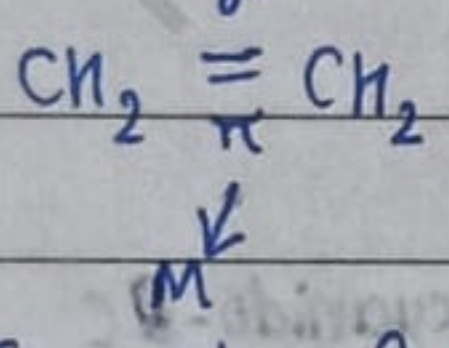 CH₂ = CH₂
π
↙
M